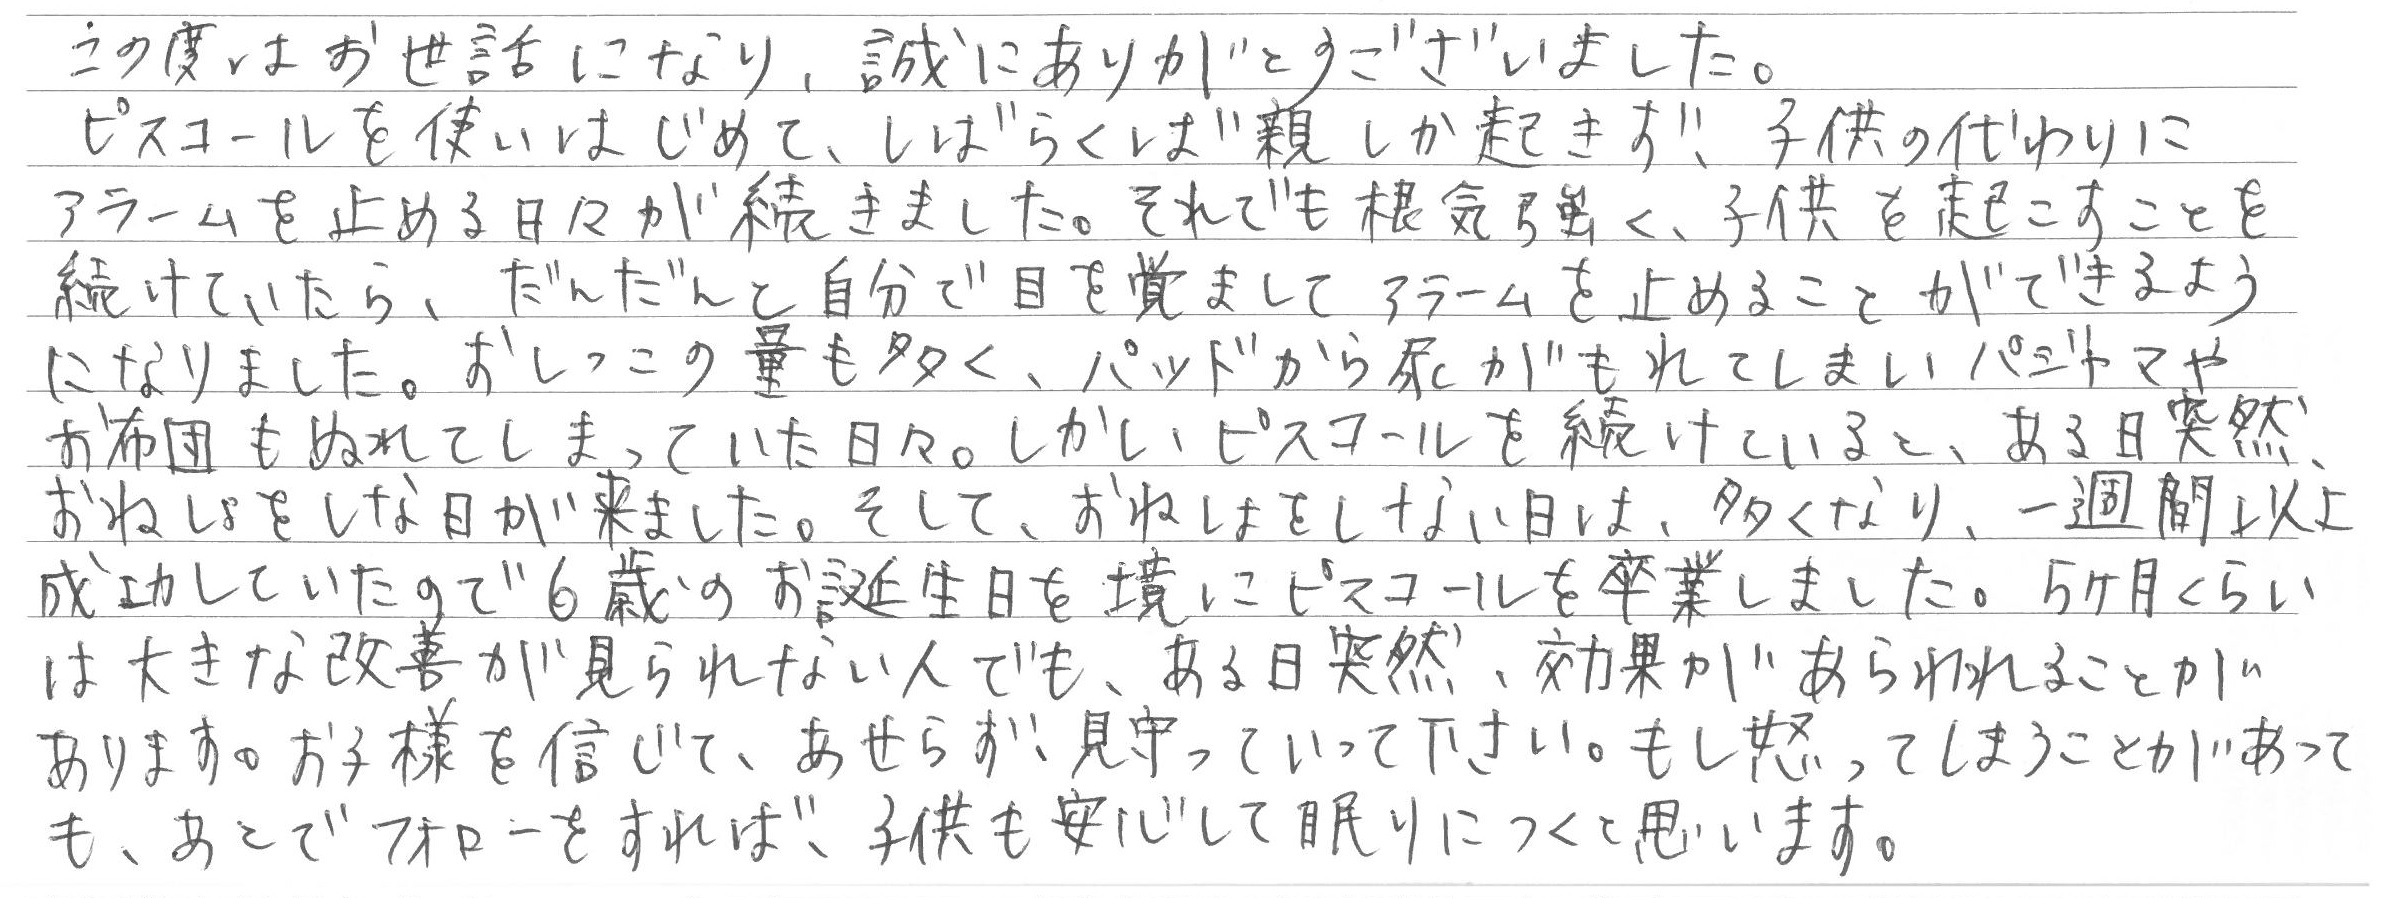 この度はお世話になり、誠にありがとうございました。
ピスコールを使いはじめて、しばらくは゛親しか起きず、子供の代わりに
アラームを止める日々が続きました。それでも根気強く、子供を起こすことを
続けていたら、だんだんと自分で目を覚ましてアラームを止めることができるよう
になりました。おしっこの量も多く、パッドから尿がもれてしまいパジャマや
お布団もぬれてしまっていた日々。しかし、ピスコールを続けていると、ある日突然、
おねしょをしな日が来ました。そして、おねしょをしない日は、多くなり、一週間以上
成功していたので6歳のお誕生日を境にピスコールを卒業しました。5ヶ月くらい
は大きな改善が見られない人でも、ある日突然、効果があらわれることが
あります。お子様を信じて、あせらず、見守っていって下さい。もし怒ってしまうことがあって
も、あとでフォローをすれば、子供も安心して眠りにつくと思います。